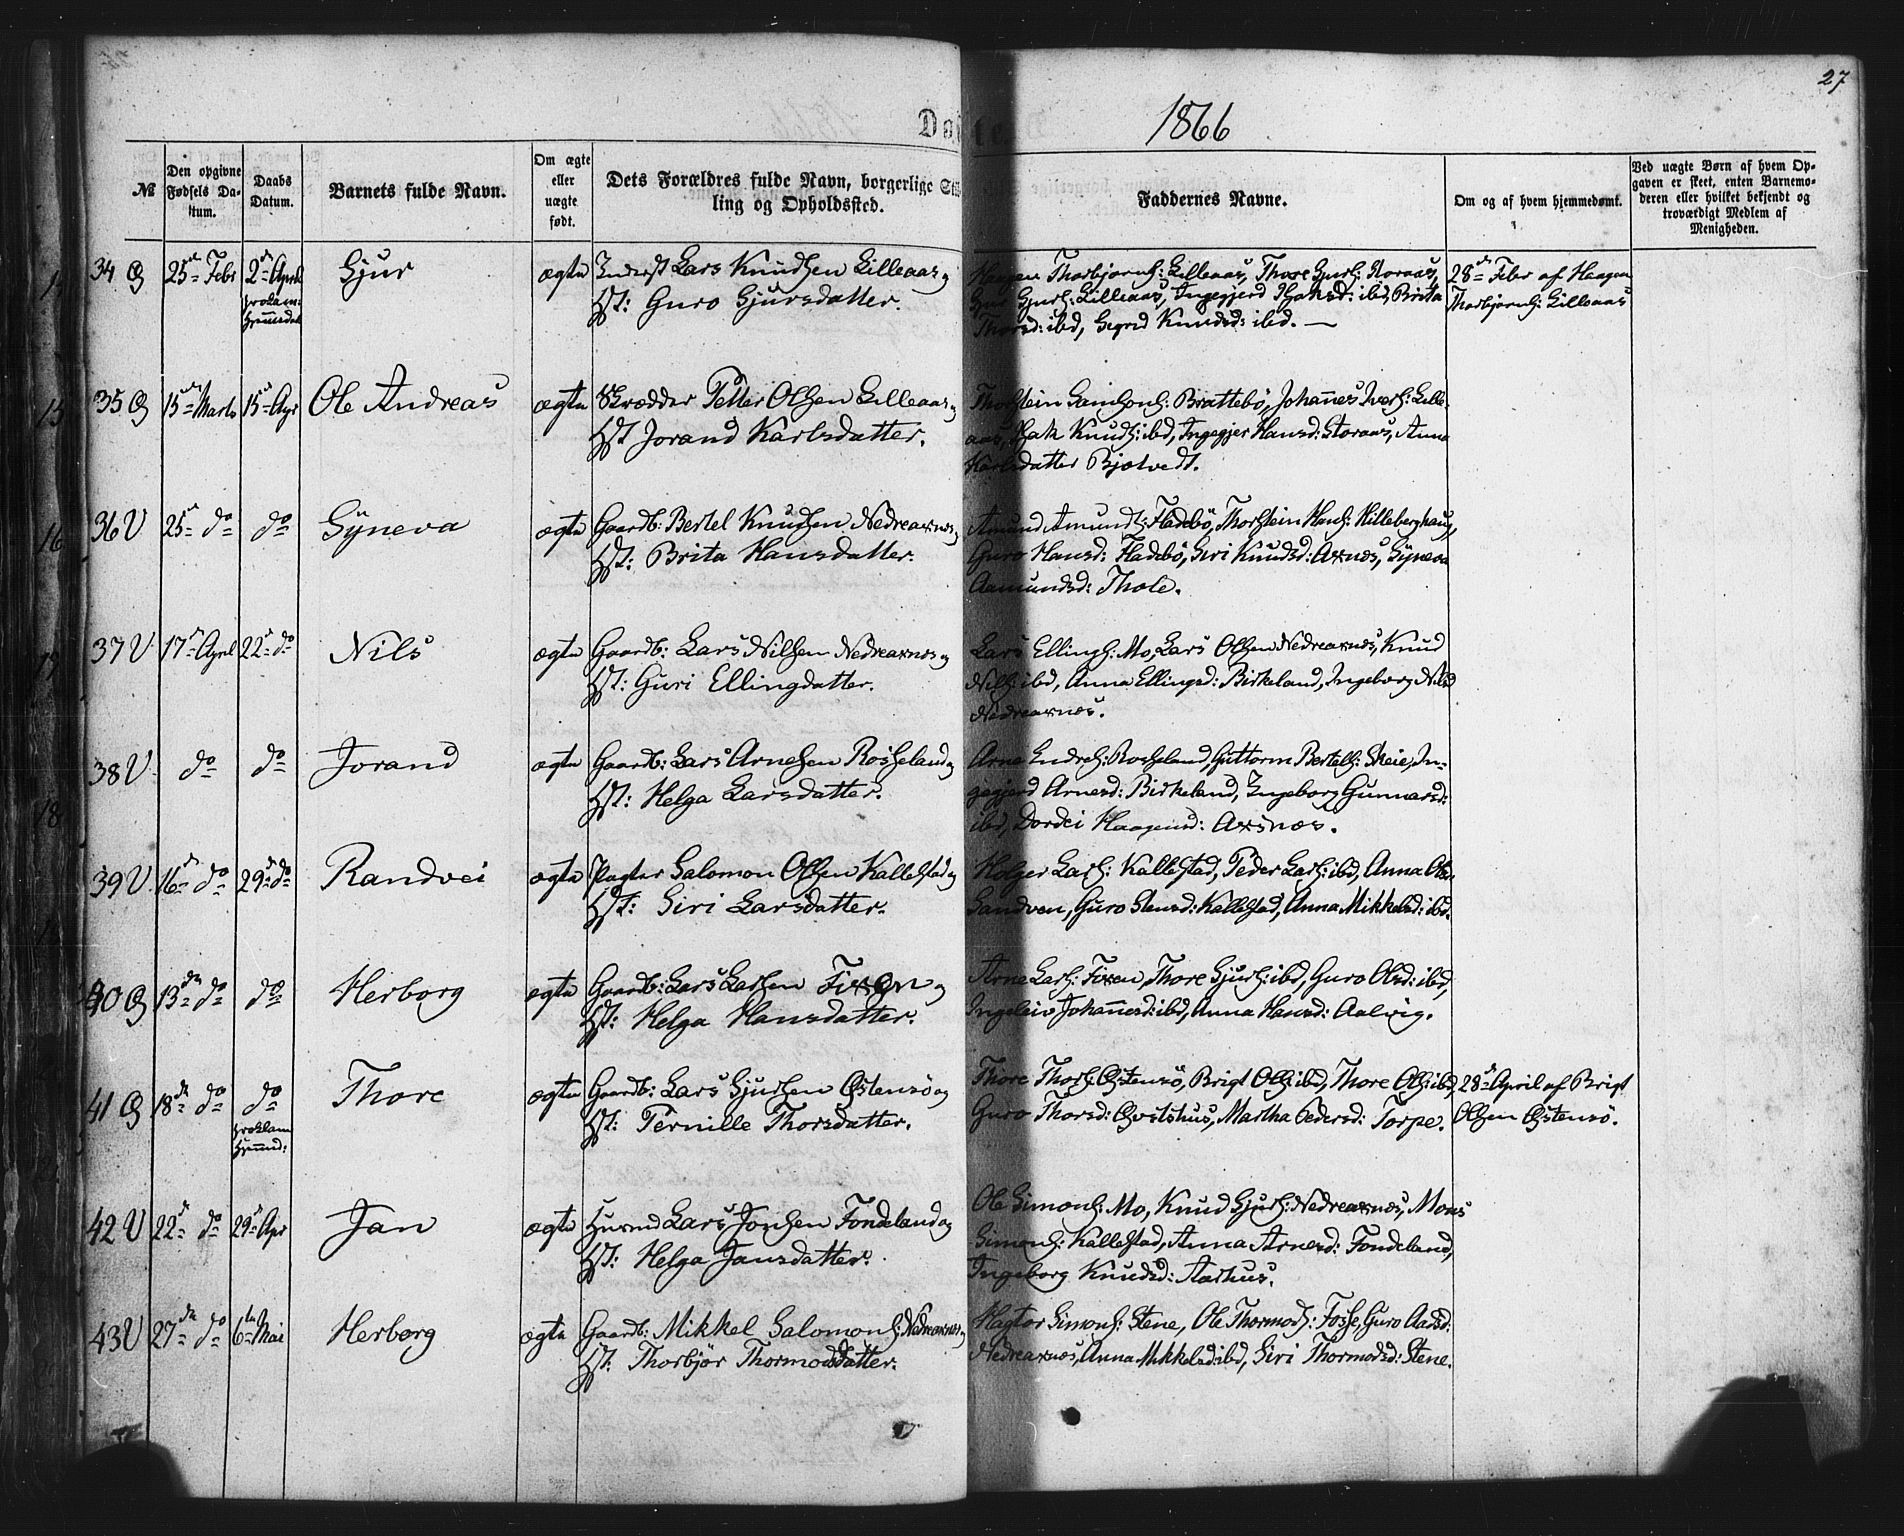 27
Døbte
1866
№
Den opgivne Fødsels Da-
tum.
Daabs
Datum.
Barnets fulde Navn.
Om ægte
eller
uægte
født.
Dets Forældres fulde Navn, borgerlige Stil-
ling og Opholdssted.
Faddernes Navne.
Om og af hvem hjemmedømt.
Ved uægte Børn af hvem Op-
gaven er skeet, enten Barnemo-
deren eller hvilket bekjendt og
troværdigt Medlem af
Menigheden.
34 Ø 25de Febr 2den April Sjur ægte Inderst Lars Knudsen Lilleaas og Haagen Thorbjørns: Lilleaas, Thore Sjurs: Storaas, 28de Febr af Haagen
proklam: Hst: Guro Sjursdatter. Sjurs: Lilleaas, Ingegjerd Isaksd: ibid, Brita Thorbjørns: Lilleaas
Hjemmedøbt Thorsd: ibd, Sigrid Knudsd: ibd.
35 Ø 15de Marts 15de Apr Ole Andreas ægte Skrædder Petter Olsen Lilleaas og Thorstein Samsons: Brattebö, Johannes Ivers: Lille-
Hst Jorand Karlsdatter. aas, Isak Knuds: ibd, Ingegjer Hansd: Storaas, Anna
Karlsdatter Bjotvedt.
36 V 25de do do Syneva ægte Gaardb: Bertel Knudsen Nedreaxnes og Amund Amunds: Fladebö, Thorstein Hans: Hilleberghaug,
Hst: Brita Hansdatter. Guro Hansd: Fladebö, Siri Knudsd: Axnes, Syneva
Aamundsd: Thole.
37 V 17de April 22de do Nils ægte Gaardb: Lars Nilsen Nedreaxnes og Lars Ellings: Mo, Lars Olsen Nedreaxnes, Knud
Hst: Guri Ellingdatter. Nils: ibd, Anna Ellingsd: Birkeland, Ingeborg Nilsd
Nedreaxnes.
38 V do do Jorand ægte Gaardb: Lars Arnesen Rosseland og Arne Endres: Rosseland, Guttorm Bertels: Skeie, In-
Hst: Helga Larsdatter. gegjerd Arnesd: Birkeland, Ingeborg Gunnarsd:
ibd, Dordei Haagensd: Axsnes.
39 V 16de do 29de do Randvei ægte Pagter Salomon Olsen Kallestad og Holger Lars: Kallestad, Peder Lars: ibd, Anna Olsd:
Hst: Siri Larsdatter. Sandven, Guro Stensd: Kallestad, Anna Mikkelsd: ibd.
40 Ø 13de do do Herborg ægte Gaardb: Lars Larsen Fixen og Arne Lars: Fixen, Thore Sjurs: ibd, Guro Olsd: ibd,
Hst: Helga Hansdatter. Ingeleiv Johannesd: ibd, Anna Hansd: Aalvig.
41 Ø 18de do do Thore ægte Gaardb: Lars Sjursen Østensö og Thore Thors: Østensö, Brigt Ols: ibd, Thore Ols: ibd, 28de April af Brigt
proklam Hst: Pernille Thorsdatter. Guro Thorsd: Øvsthus, Martha Pedersd: Torpe. Olsen Østensö.
Hjemmed:
42 V 22de do 29de Apr Jan ægte Husmd Lars Jonsen Fondeland og Ole Simons: Mo, Knud Sjurs: Nedreaxnes, Mons
Hst: Helga Jansdatter. Simons: Kallestad, Anna Arnesd: Fondeland,
Ingeborg Knudsd: Aarhus.
43 V 27de do 6te Mai Herborg ægte Gaardb: Mikkel Salomons: Nedreaxnes og Hagtor Simons: Stene, Ole Thormods: Fosse, Guro Aadsd:
Hst: Thorbjör Thormodsdatter. Nedreaxnes, Anna Mikkelsd: ibd, Siri Thormodsd: Stene.